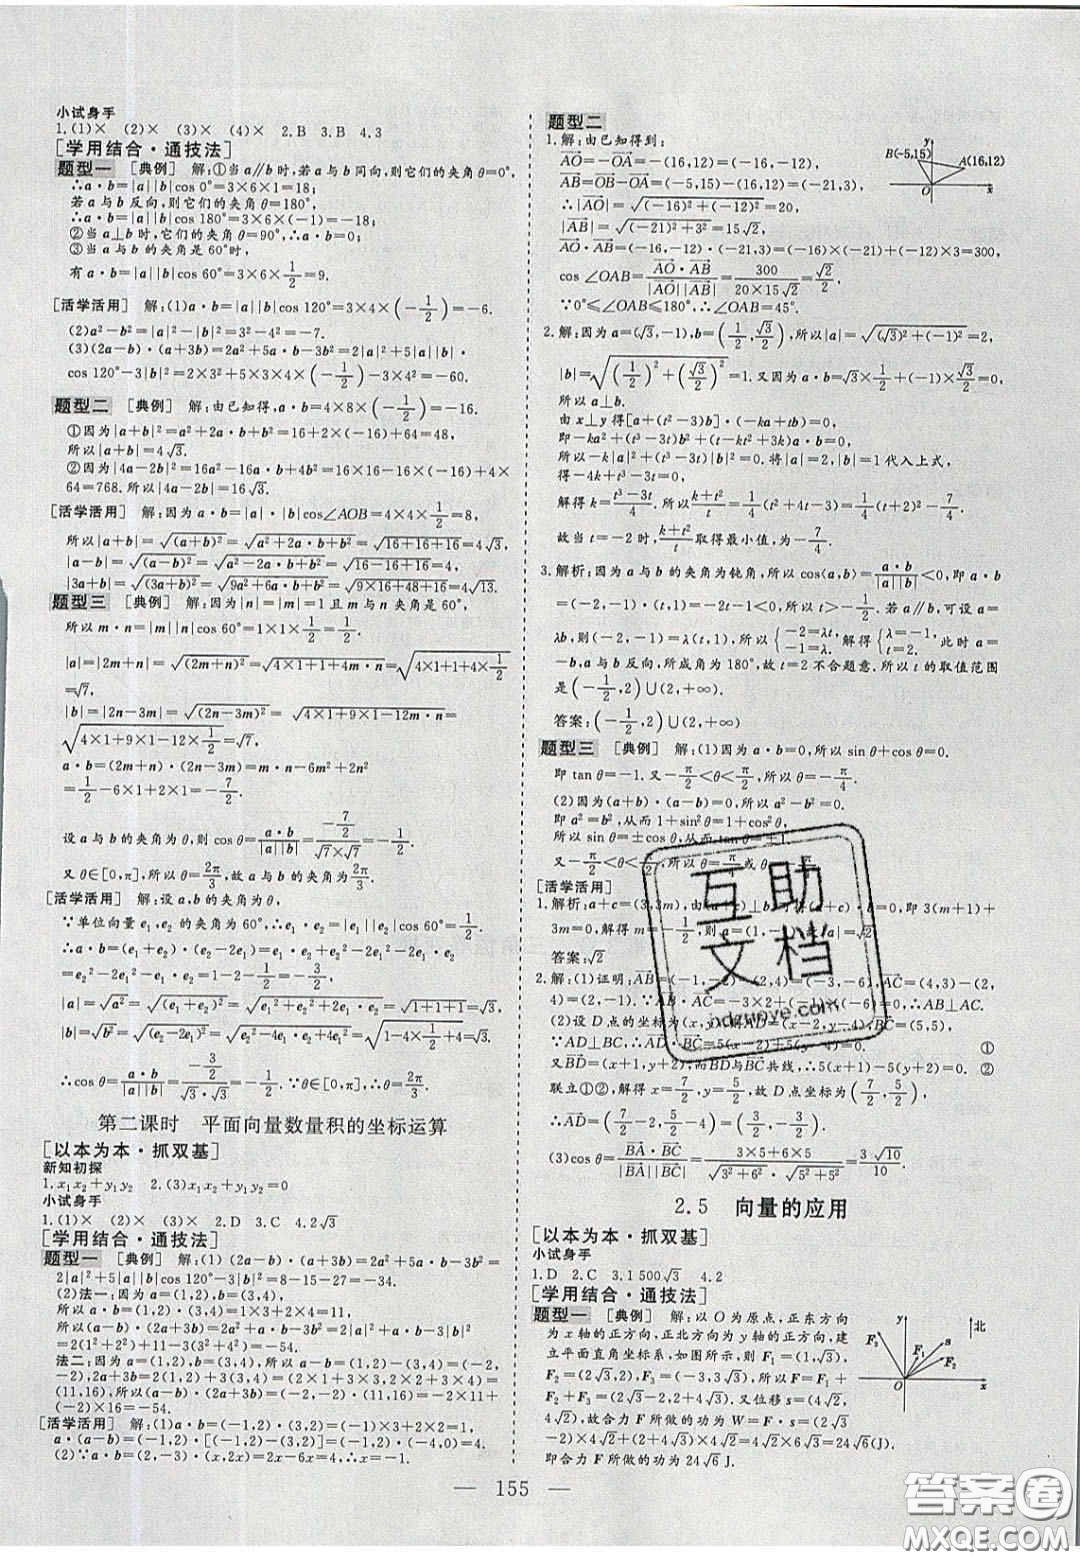 小试身手
1.(1)× (2)× (3)× (4)× 2.B 3.B 4.3
[学用结合·通技法]
题型一 [典例] 解:①当a∥b时,若a与b同向,则它们的夹角θ=0°,
∴a·b=|a||b|cos 0°=3×6×1=18;
若a与b反向,则它们的夹角θ=180°,
∴a·b=|a||b|cos 180°=3×6×(-1)=-18;
②当a⊥b时,它们的夹角θ=90°,∴a·b=0;
③当a与b的夹角是60°时,
有a·b=|a||b|cos 60°=3×6×1/2=9.
[活学活用] 解:(1)a·b=|a||b|cos 120°=3×4×(-1/2)=-6.
(2)a²-b²=|a|²-|b|²=3²-4²=-7.
(3)(2a-b)·(a+3b)=2a²+5a·b-3b²=2|a|²+5|a||b|·
cos 120°-3|b|²=2×3²+5×3×4×(-1/2)-3×4²=-60.
题型二 [典例] 解:由已知得,a·b=4×8×(-1/2)=-16.
①因为|a+b|²=a²+2a·b+b²=16+2×(-16)+64=48,
所以|a+b|=4√3.
②因为|4a-2b|²=16a²-16a·b+4b²=16×16-16×(-16)+4×
64=768.所以|4a-2b|=16√3.
[活学活用] 解:因为a·b=|a|·|b|cos∠AOB=4×4×1/2=8,
所以|a+b|=√(a+b)²=√a²+2a·b+b²=√16+16+16=4√3,
|a-b|=√(a-b)²=√a²-2a·b+b²=√16-16+16=4,
|3a+b|=√(3a+b)²=√9a²+6a·b+b²=√9×16+48+16=4√13.
题型三 [典例] 解:因为|n|=|m|=1且m与n夹角是60°,
所以m·n=|m||n|cos 60°=1×1×1/2=1/2.
|a|=|2m+n|=√(2m+n)²=√4×1+1+4m·n=√4×1+1+4×1/2
=√7,
|b|=|2n-3m|=√(2n-3m)²=√4×1+9×1-12m·n=
√4×1+9×1-12×1/2=√7,
a·b=(2m+n)·(2n-3m)=m·n-6m²+2n²
=1/2-6×1+2×1=-7/2.
设a与b的夹角为θ,则cos θ=a·b/|a||b|=(-7/2)/(√7×√7)=-1/2.
又θ∈[0,π],所以θ=2π/3,故a与b的夹角为2π/3.
[活学活用] 解:设a,b的夹角为θ,
∵单位向量e₁,e₂的夹角为60°,∴e₁·e₂=|e₁||e₂|cos 60°=1/2.
=e₁²-2e₁·e₂+e₁·e₂-2e₂²
|a|=√a²=√(e₁+e₂)²=√e₁²+e₂²+2e₁·e₂=√1+1+1=√3,
∴cos θ=a·b/|a||b|=(-3/2)/(√3·√3)=-1/2.∵θ∈[0,π],∴θ=2π/3.
第二课时 平面向量数量积的坐标运算
[以本为本·抓双基]
新知初探
1.x₁x₂+y₁y₂ 2.(3)x₁x₂+y₁y₂=0
小试身手
1.(1)× (2)× (3)× 2.D 3.C 4.2√3
[学用结合·通技法]
题型一 [典例] 解:(1)(2a-b)·(a+3b)=2a²+5a·b-3b²=
2|a|²+5|a||b|cos 120°-3|b|²=8-15-27=-34.
(2)法一:因为a=(1,2),b=(3,4),
所以a·b=(1,2)·(3,4)=1×3+2×4=11,
所以(a-b)·(2a+3b)=2a²+a·b-3b²=2|a|²+a·b-3|b|²=
2(1²+2²)+11-3(3²+4²)=-54.
法二:因为a=(1,2),b=(3,4),所以a-b=(1,2)-(3,4)=(-2,
-2),2a+3b=2(1,2)+3(3,4)=(2×1+3×3,2×2+3×4)=
(11,16),所以(a-b)·(2a+3b)=(-2,-2)·(11,16)=-2×11+
(-2)×16=-54.
[活学活用] 解:(1)a·b=(-1,2)·(3,2)=(-1)×3+2×2=1,
a·(a-b)=(-1,2)·[(-1,2)-(3,2)]=(-1,2)·(-4,0)=4.
(2)∵a·b=(-1,2)·(3,2)=(-1)×3+2×2=1,
题型二
1.解:由已知得到:
AO=-OA=-(16,12)=(-16,-12),
AB=OB-OA=(-5,15)-(16,12)=(-21,3).
∴|AO|=√(-16)²+(-12)²=20,
|AB|=√(-21)²+3²=15√2,
y
B(-5,15)
A(16,12)
O
x
AO·AB=(-16,-12)·(-21,3)=(-16)×(-21)+(-12)×3=300,
cos∠OAB=AO·AB/|AO||AB|=300/(20×15√2)=√2/2.
∵0°≤∠OAB≤180°,∴∠OAB=45°.
2.解:因为a=(√3,-1),b=(1/2,√3/2),所以|a|=√(√3)²+(-1)²=2,
|b|=√(1/2)²+(√3/2)²=1.又因为a·b=√3×1/2+(-1)×√3/2=0,
所以a⊥b.
由x⊥y得[a+(t²-3)b]·(-ka+tb)=0,
即-ka²+(t³-3t)b²+(-t-kt²+3k)a·b=0.
得-4k+t³-3t=0.
解得k=(t³-3t)/4,所以(k+t²)/t=1/4(t²+4t-3)=1/4(t+2)²-7/4.
故当t=-2时,(k+t²)/t取得最小值,为-7/4.
3.解析:因为a与b的夹角为钝角,所以cos⟨a,b⟩=a·b/|a||b|<0,即a·b
=(-2,-1)·(t,1)=-2t-1<0,所以t>-1/2.若a∥b,可设a=
λb,所以(-2,-1)=λ(t,1),所以{-2=λt, -1=λ. 解得{λ=-1, t=2. 此时a=
-b,a与b反向,所成角为180°,故t=2不合题意.所以t的取值范围
是(-1/2,2)∪(2,+∞).
答案:(-1/2,2)∪(2,+∞)
题型三 [典例] 解:(1)因为a·b=0,所以sin θ+cos θ=0.
即tan θ=-1.又-π/2<θ<π/2,所以θ=-π/4.
(2)因为(a+b)·(a-b)=0,所以a²-b²=0.
即a²=b²,所以1+sin²θ=1+cos²θ,
所以sin θ=±cos θ,从而tan θ=±1,
[活学活用]
答案:√2
∵AD⊥BC,∴AD·BC=5(x-2)+5(y-4)=0. ①
又BD=(x+1,y+2),而BD与BC共线,∴5(x+1)-5(y+2)=0. ②
联立①②,解得x=7/2,y=5/2,故D点坐标为(7/2,5/2).
(3)cos θ=BA·BC/|BA||BC|=(3×5+6×5)/(√3²+6²·√5²+5²)=3√10/10.
2.5 向量的应用
[以本为本·抓双基]
小试身手
1.D 2.C 3.1 500√3 4.2
[学用结合·通技法]
题型一 [典例] 解:以O为原点,正东方向
为x轴的正方向,正北方向为y轴的正方向,建
立平面直角坐标系,如图所示,则F₁=(1,√3),
F₂=(2√3,2),F₃=(-3,3√3),所以F=F₁+
F₂+F₃=(2√3-2,2+4√3).又位移s=(4√2,
4√2),故合力F所做的功为W=F·s=(2√3-
2)×4√2+(2+4√3)×4√2=4√2×6√3=24√6(J).
即合力F所做的功为24√6 J.
y
北
F₃
F₁
s
F₂
O
x
互助
文档
hdzuoye.com
155
答案圈
MXQE.COM